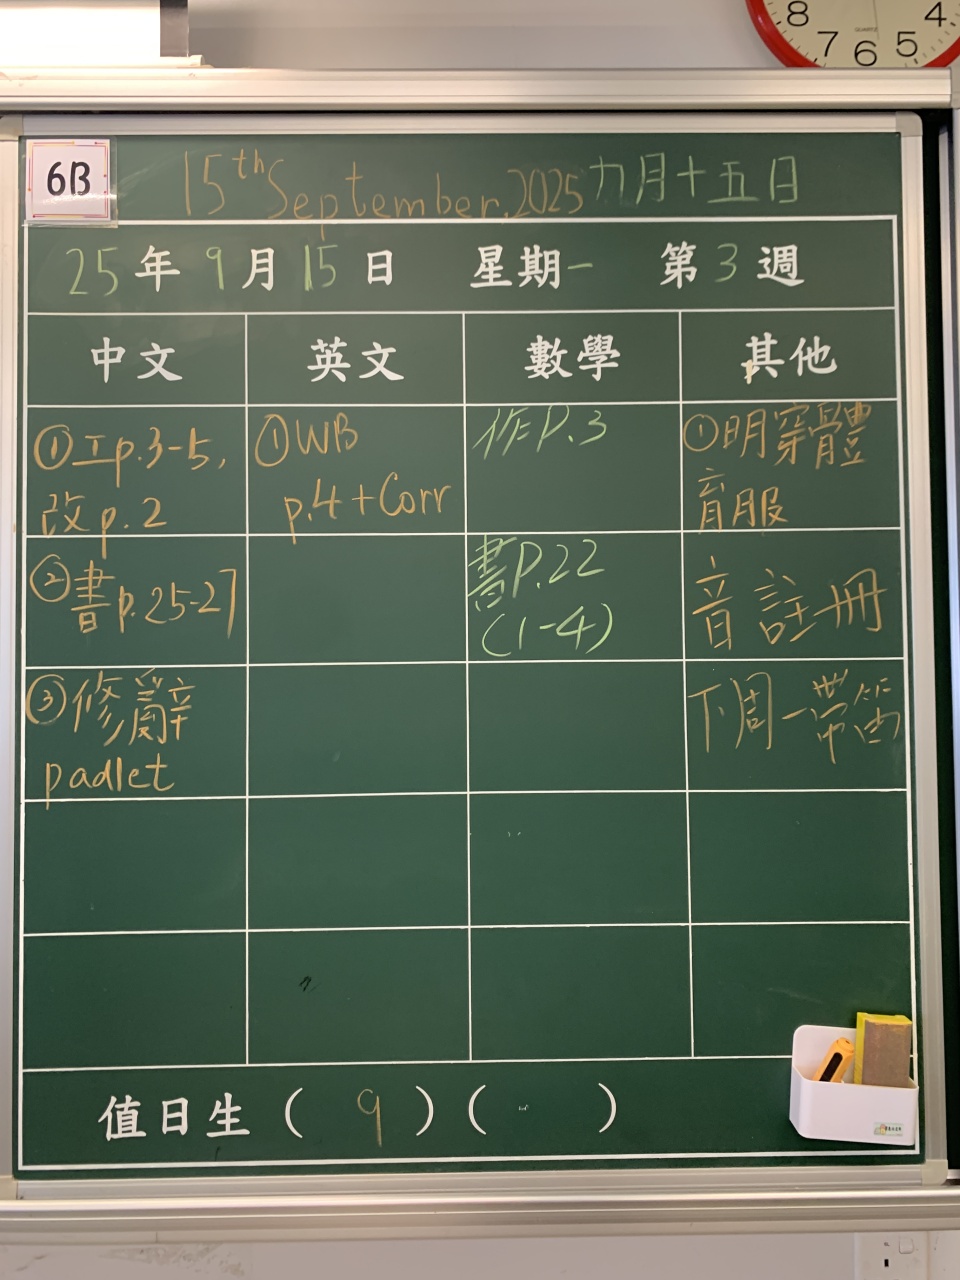 8
4
7
6
5
QUARTZ
6B
15th September.2025 九月十五日
25年9月15日 星期一 第3週
中文 英文 數學 其他
①工p.3-5,
改p.2
①WB
p.4+Corr
作P.3
①明穿體
育服
②書p.25-27
書P.22
(1-4)
音註冊
③修辭
padlet
下周一帶笛
值日生( 9 )( )